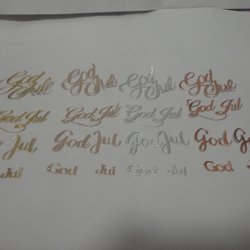 God Jul God Jul God Jul God Jul
God Jul God Jul God Jul God Jul
Jul God Jul God Jul God
Jul God Jul God Jul God